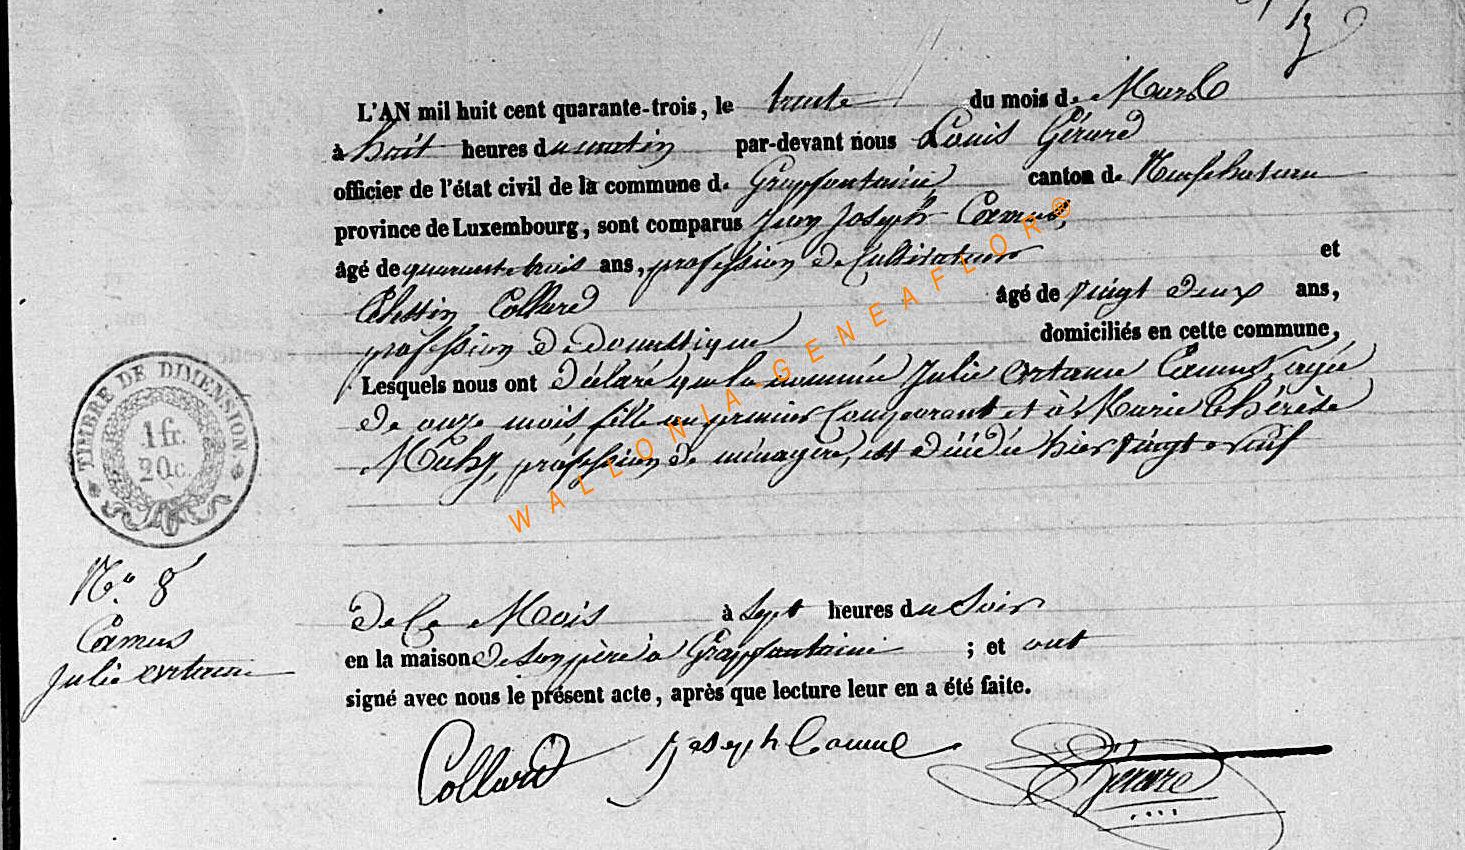 L'AN mil huit cent quarante-trois, le trente du mois de Mars
à huit heures du matin par-devant nous Louis Gérard
officier de l'état civil de la commune de Grapfontaine canton de Neufchateau
province de Luxembourg, sont comparus Jean Joseph Camus
âgé de quarante trois ans, profession de Cultivateur et
Célestin Collard âgé de vingt deux ans,
profession de domestique domiciliés en cette commune,
Lesquels nous ont déclaré que la nommée Julie Camus, agée
de onze mois fille au premier Comparant et à Marie Thérèse
profession de ménagère, est décédée hier vingt neuf
TIMBRE DE DIMENSION
1 fr.
20 c.
WALLONIA-GENEAFLOR®
N.° 8
Camus
Julie
de Ce Mois à Sept heures du Soir
en la maison de son père à Grapfontaine ; et ont
signé avec nous le présent acte, après que lecture leur en a été faite.
Collard Joseph Camus Gérard